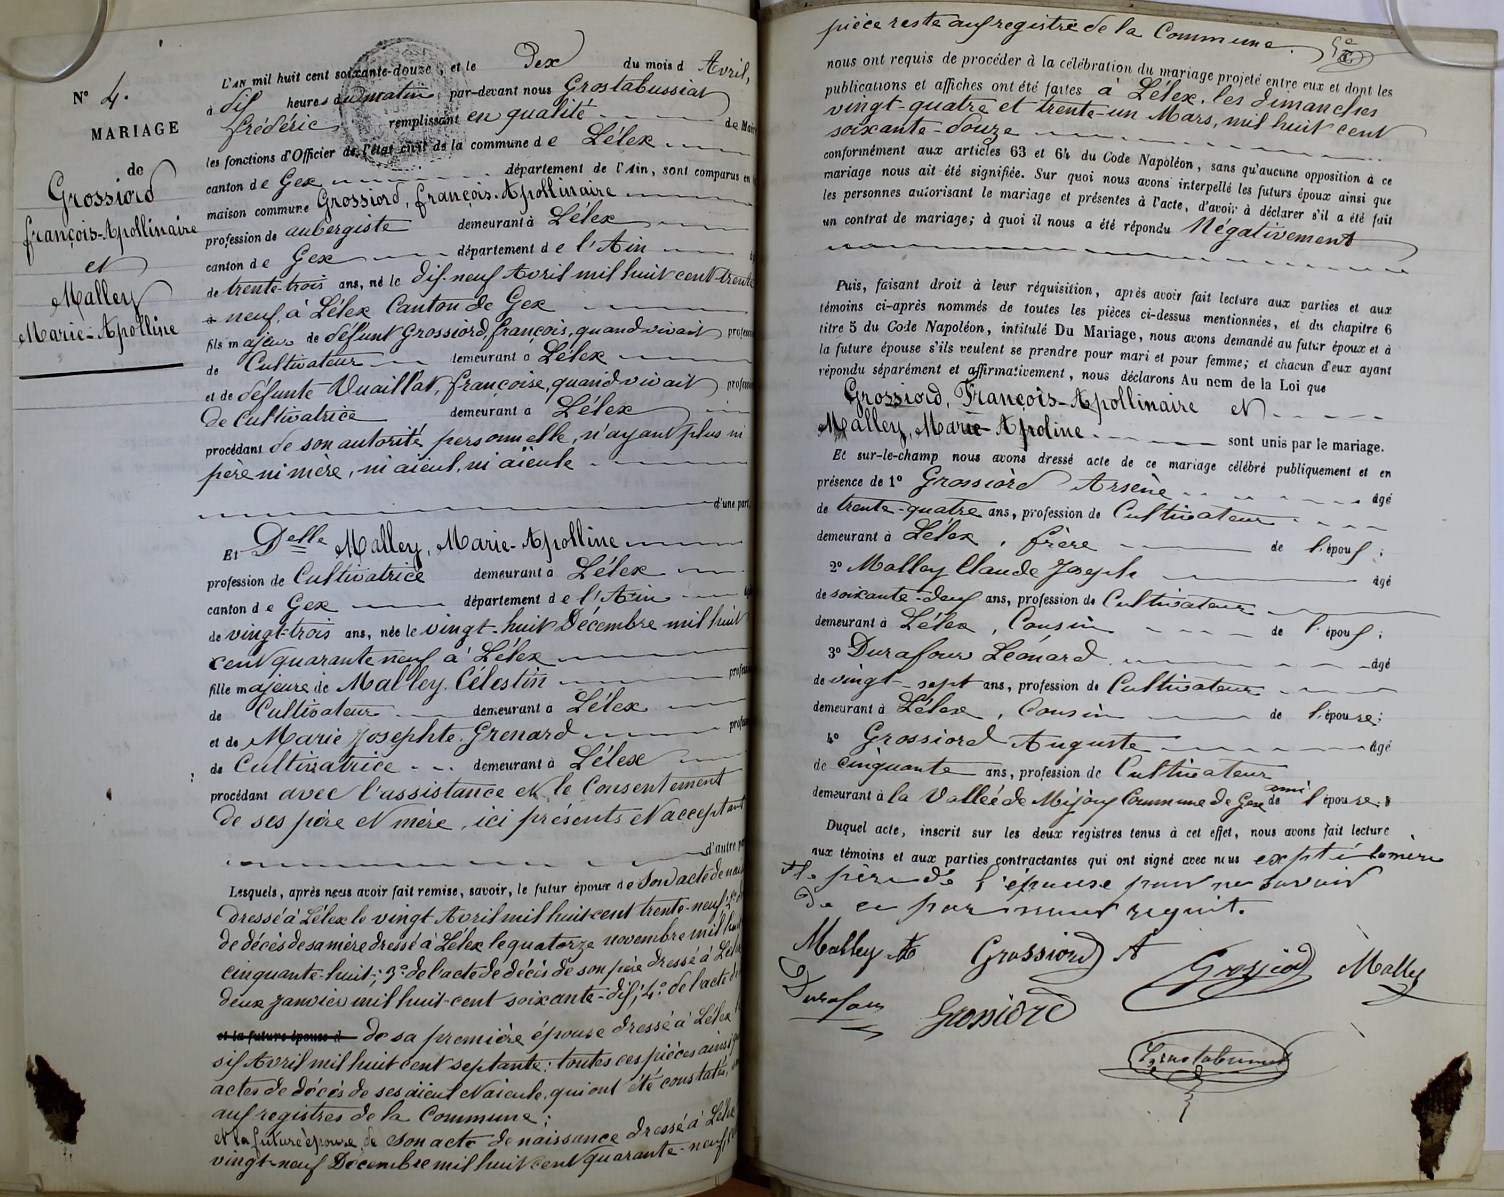 N° 4.
MARIAGE
de
Grossiord
françois-Apollinaire
et
Malley
Marie-Apolline
L'AN mil huit cent soixante-douze, et le Dex du mois d Avril,
à dix heures du matin, par-devant nous Grostabussiat
frédéric remplissant en qualité de Mai
les fonctions d'Officier de l'état civil de la commune de Lélex
canton de Gex département de l'Ain, sont comparus en
maison commune Grossiord, françois-Apollinaire
profession de aubergiste demeurant à Lélex
canton de Gex département de l'Ain
de trente-trois ans, né le dix-neuf Avril mil huit cent trente
neuf, à Lélex Canton de Gex
fils majeur de défunt Grossiord, françois, quand vivait profess
de Cultivateur demeurant à Lélex
et de défunte Vuaillat, françoise, quand vivait profess
de Cultivatrice demeurant à Lélex
procédant de son autorité personnelle, n'ayant plus ni
père ni mère, ni aïeul, ni aïeule
d'une part,
Et Delle Malley, Marie-Apolline
profession de Cultivatrice demeurant à Lélex
canton de Gex département de l'Ain
de vingt-trois ans, née le vingt-huit Décembre mil huit
cent quarante neuf à Lélex
fille majeure de Malley Célestin profess
de Cultivateur demeurant à Lélex
et de Marie Josephte Grenard profess
de Cultivatrice demeurant à Lélex
procédant avec l'assistance et le Consentement
de ses père et mère, ici présents et acceptant
d'autre par
Lesquels, après nous avoir fait remise, savoir, le futur époux de Son acte de nais
dressé à Lélex le vingt Avril mil huit cent trente-neuf;
de décès de sa mère dressé à Lélex le quatorze novembre mil huit
cinquante-huit; 3° de l'acte de décès de son père dressé à Lélex
deux janvier mil huit-cent soixante-dix; 4° de l'acte de
et la future épouse d de sa première épouse dressé à Lélex
six Avril mil huit cent septante; toutes ces pièces ainsi
actes de décès de ses aïeul et aïeule, qui ont été constatés,
aux registres de la Commune;
et la future épouse de Son acte de naissance dressé à Lélex
vingt-neuf Décembre mil huit cent quarante-neuf,
pièce reste aux registre de la Commune.
nous ont requis de procéder à la célébration du mariage projeté entre eux et dont les
publications et affiches ont été faites à Lélex, les dimanches
vingt-quatre et trente-un Mars, mil huit cent
soixante-douze
conformément aux articles 63 et 64 du Code Napoléon, sans qu'aucune opposition à ce
mariage nous ait été signifiée. Sur quoi nous avons interpellé les futurs époux ainsi que
les personnes autorisant le mariage et présentes à l'acte, d'avoir à déclarer s'il a été fait
un contrat de mariage; à quoi il nous a été répondu Négativement
Puis, faisant droit à leur réquisition, après avoir fait lecture aux parties et aux
témoins ci-après nommés de toutes les pièces ci-dessus mentionnées, et du chapitre 6
titre 5 du Code Napoléon, intitulé Du Mariage, nous avons demandé au futur époux et à
la future épouse s'ils veulent se prendre pour mari et pour femme; et chacun d'eux ayant
répondu séparément et affirmativement, nous déclarons Au nom de la Loi que
Grossiord, François-Apollinaire et
Malley, Marie-Apoline sont unis par le mariage.
Et sur-le-champ nous avons dressé acte de ce mariage célébré publiquement et en
présence de 1° Grossiord Arsène âgé
de trente-quatre ans, profession de Cultivateur
demeurant à Lélex, frère de l'époux;
2° Malley Claude Joseph âgé
de soixante-deux ans, profession de Cultivateur
demeurant à Lélex, Cousin de l'époux;
3° Durafour Léonard âgé
de vingt-sept ans, profession de Cultivateur
demeurant à Lélex, Cousin de l'épouse;
4° Grossiord Auguste âgé
de Cinquante ans, profession de Cultivateur
demeurant à la Vallée de Mijoux Commune de Gex ami de l'épouse.
Duquel acte, inscrit sur les deux registres tenus à cet effet, nous avons fait lecture
aux témoins et aux parties contractantes qui ont signé avec nous excepté la mère
et le père de l'épouse pour ne savoir
de ce par nous requit.
Malley A Grossiord A Grossiord Malley
Durafour Grossiord
Grostabussiat